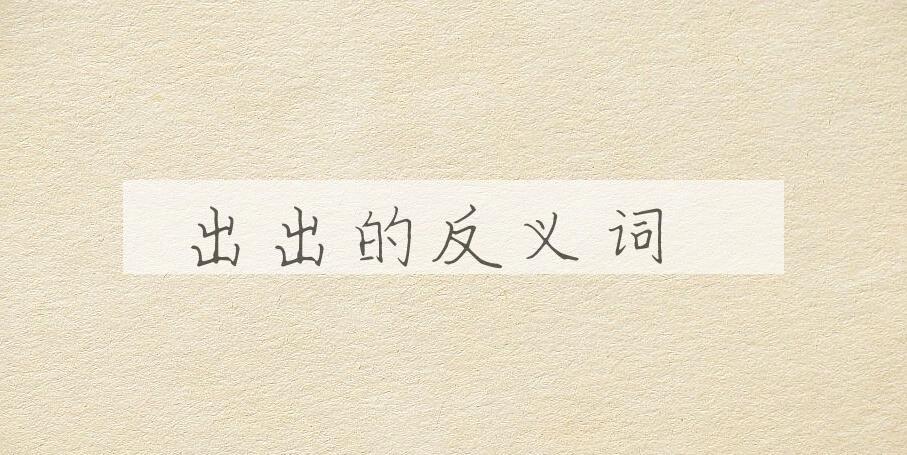 出出的反义词